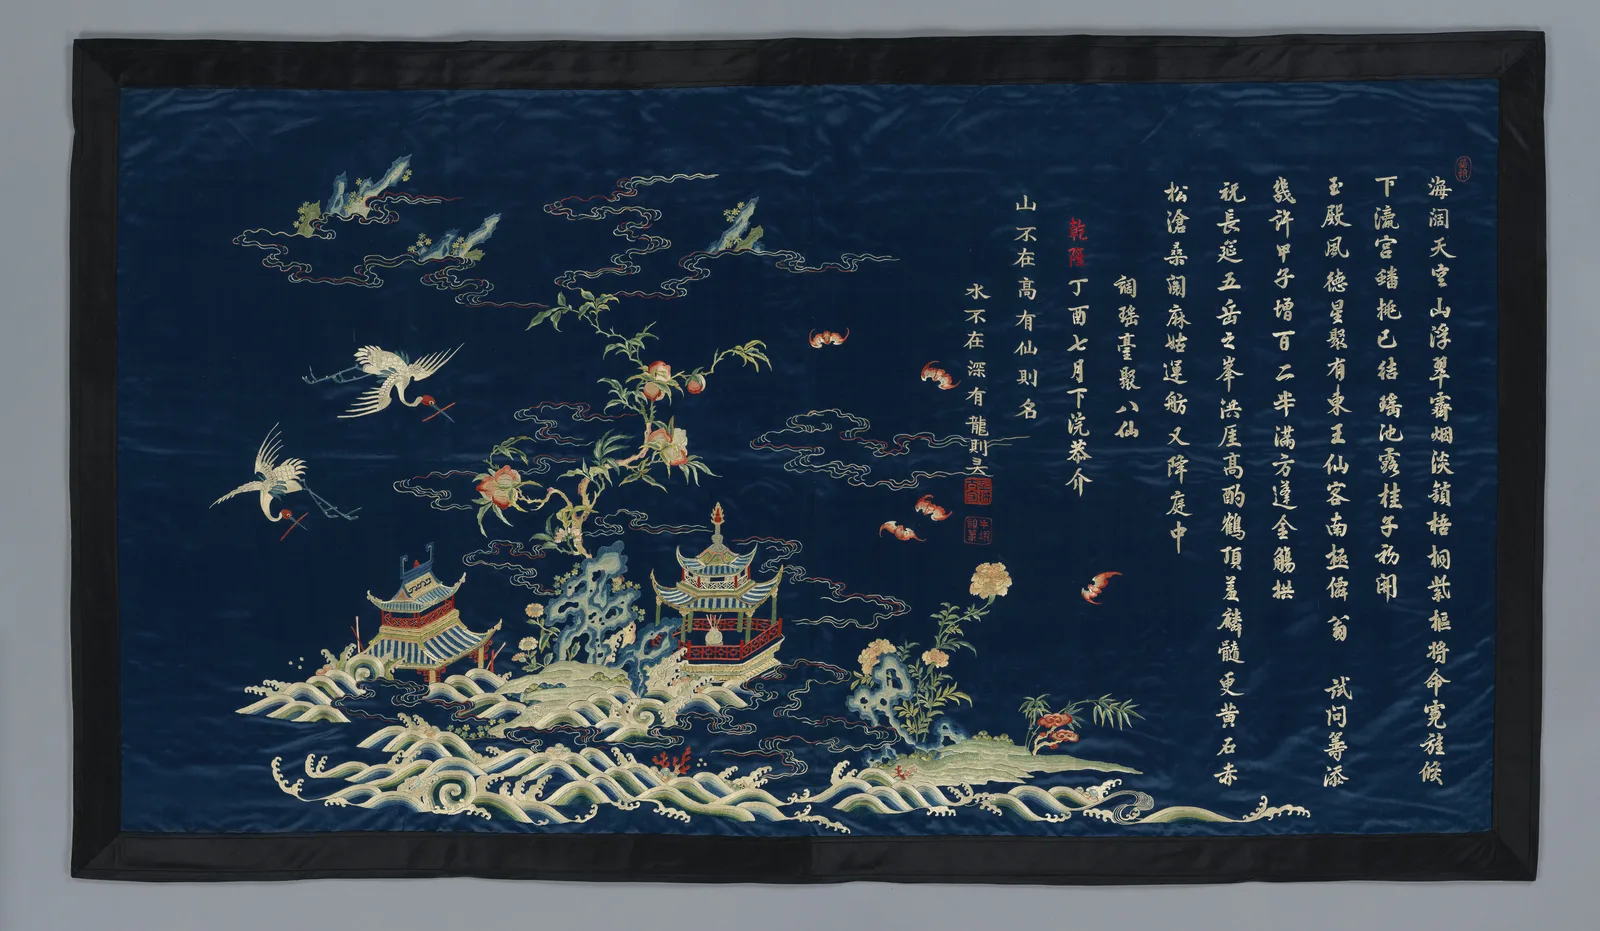 海闊天空山浮翠霽烟淡鎖梧桐紫樞將命霓旌候
下瀛宮蟠桃已結瑤池露桂子初開
玉殿風德星聚有東王仙客南極僊翁 試問籌添
幾許甲子增百二半滿方蓬金觴拱
祝長筵五岳之峯洪厓高酌鶴頂羞麟髓更黄石赤
松滄桑閱麻姑運舫又降庭中
調瑤臺聚八仙
乾隆丁酉七月下浣恭介
山不在高有仙則名
水不在深有龍則灵